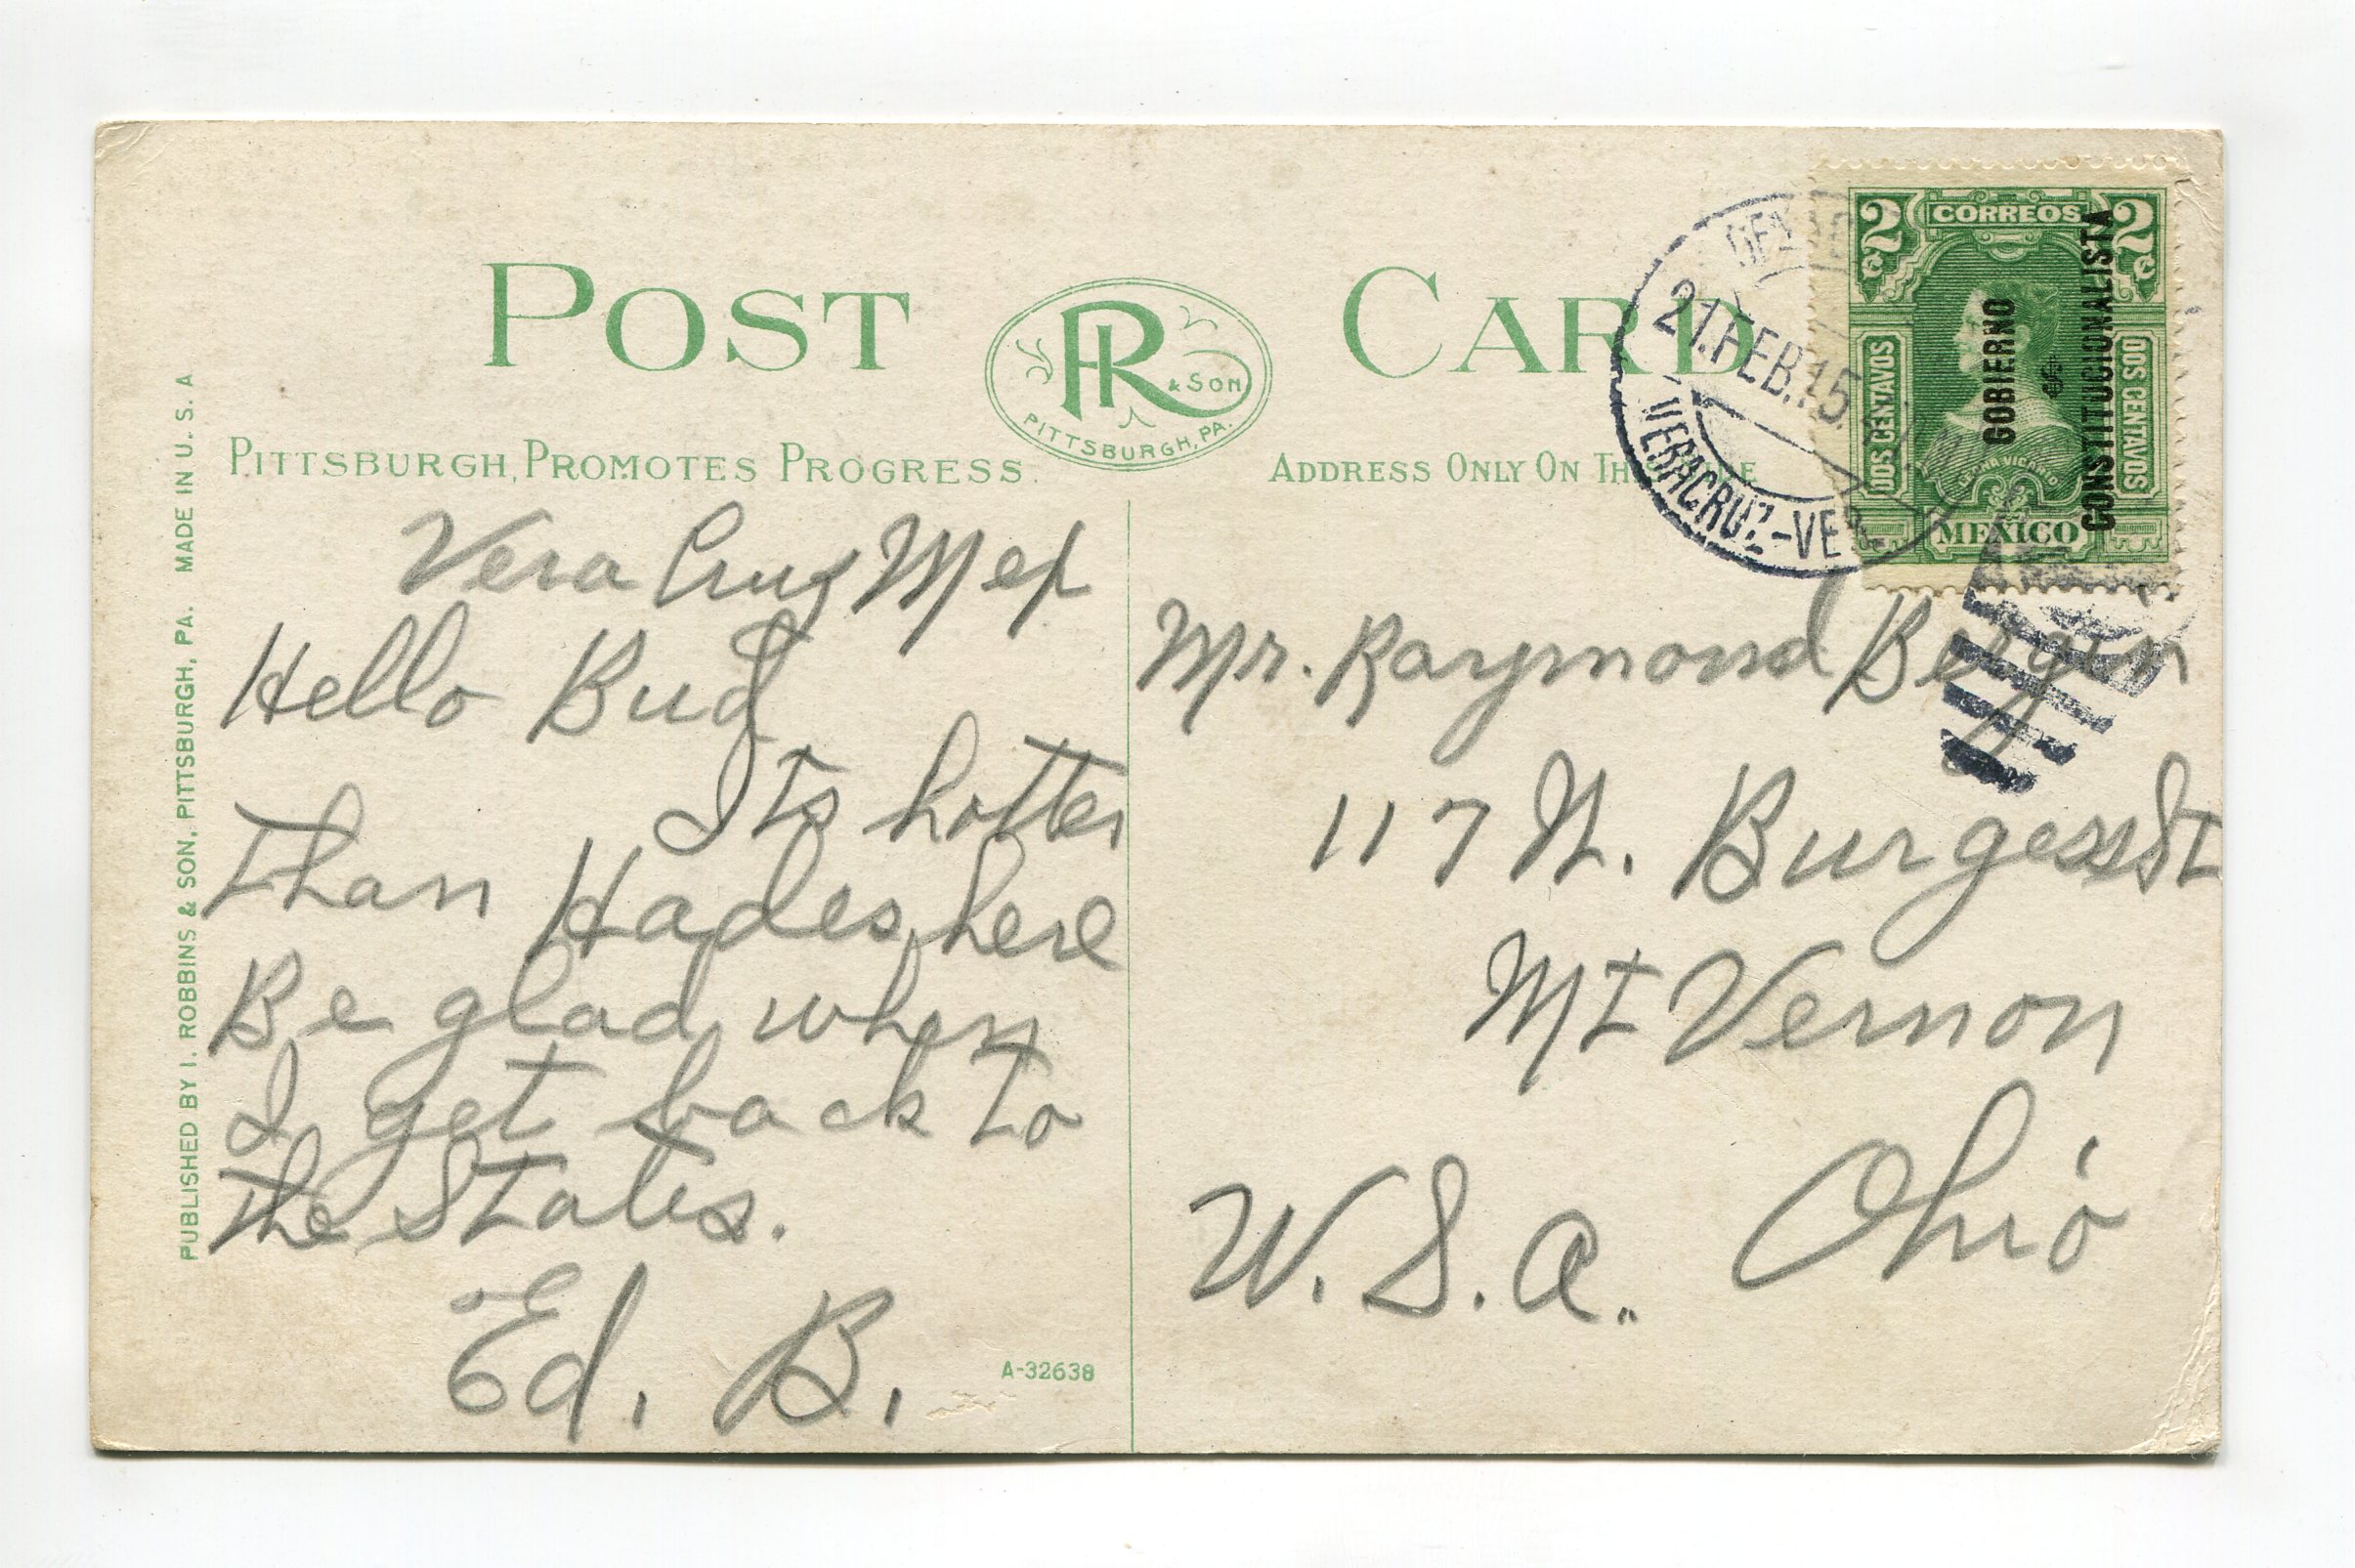 POST CARD
R & SON
PITTSBURGH, PA.
PITTSBURGH, PROMOTES PROGRESS.
ADDRESS ONLY ON TH
PUBLISHED BY I. ROBBINS & SON, PITTSBURGH, PA. MADE IN U. S. A
21.FEB.15
VERACRUZ-VER
2 CORREOS 2
DOS CENTAVOS
DOS CENTAVOS
LEONA VICARIO
MEXICO
GOBIERNO
CONSTITUCIONALISTA
Vera Cruz Mex
Hello Bud
Its hotter
than Hades here
Be glad when
I get back to
the States.
Ed. B.
A-32638
Mr. Raymond Bergin
117 N. Burgess St
Mt Vernon
Ohio
U.S.A.